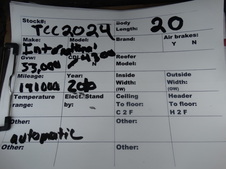 Stock#: TCC2024 Body Length: 20
Make: International Model: 4300 Brand: Air brakes: Y N
Gvw: 33,000 Reefer Model:
Mileage: 191000 Year: Inside Width: (IW) Outside Width: (OW)
Temperature range: Elec. Stand by: Ceiling To floor: C 2 F Header To floor: H 2 F
Other: Other:
automatic
Other: Other: